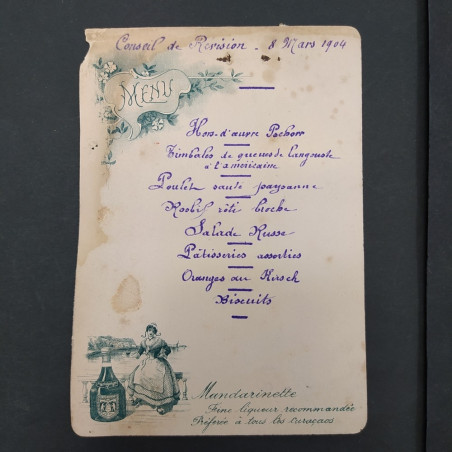 Conseil de Revision - 8 Mars 1904
MENU
Hors-d'œuvre
Timbales de queues de langouste
à l'américaine
Poulet sauté paysanne
Rosbif rôti broche
Salade Russe
Pâtisseries assorties
Oranges au Kirsch
Biscuits
Mandarinette
Fine liqueur recommandée
Préférée à tous les curaçaos